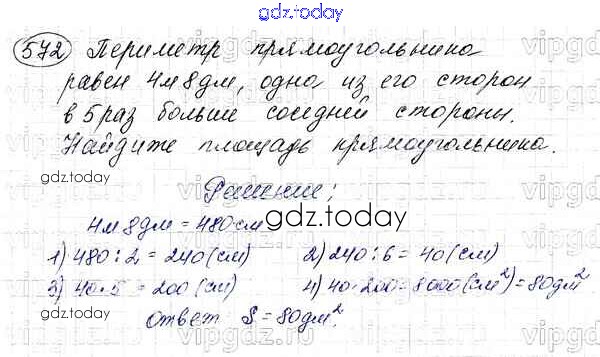 gdz.today
572 Периметр прямоугольника
равен 4м 8дм, одна из его сторон
в 5 раз больше соседней стороны.
Найдите площадь прямоугольника.
Решение:
4м 8дм = 480 см
gdz.today
1) 480 : 2 = 240 (см) 2) 240 : 6 = 40 (см)
3) 40 · 5 = 200 (см) 4) 40 · 200 = 8000 (см²) = 80 дм²
ответ S = 80 дм².
gdz.today